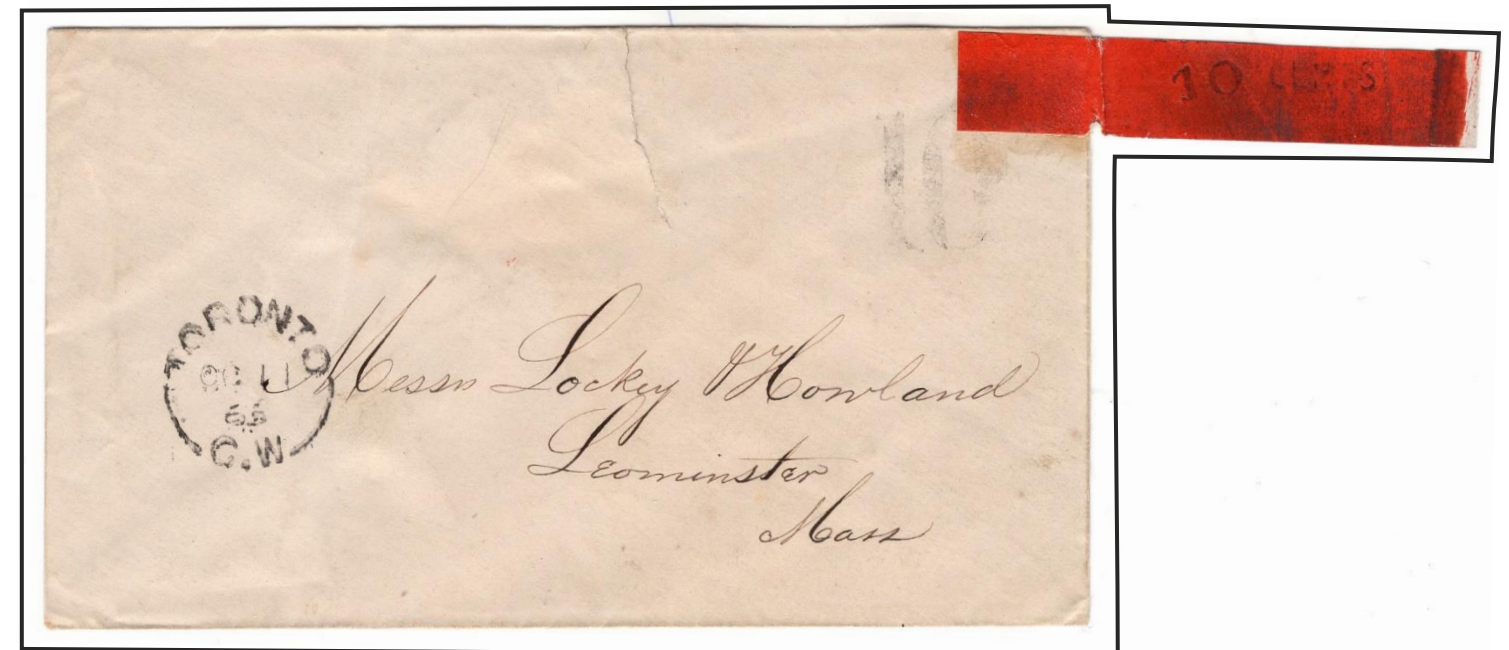 10 CENTS
10
TORONTO
OC 11
65
C.W
Messrs Lockey & Howland
Leominster
Mass